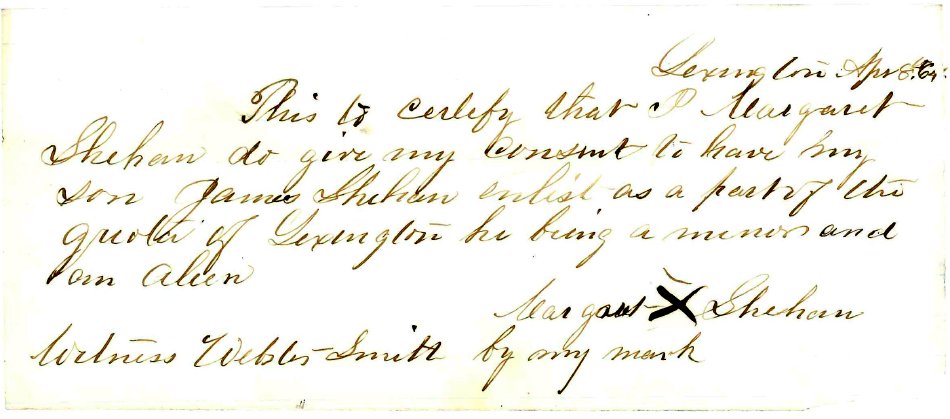 Lexington Apr 8th. 64.
This to certify that I Margaret
Shehan do give my consent to have my
son James Shehan enlist as a part of the
quota of Lexington he being a minor and
an Alien
Margaret X Shehan
Witness Webster Smith by my mark